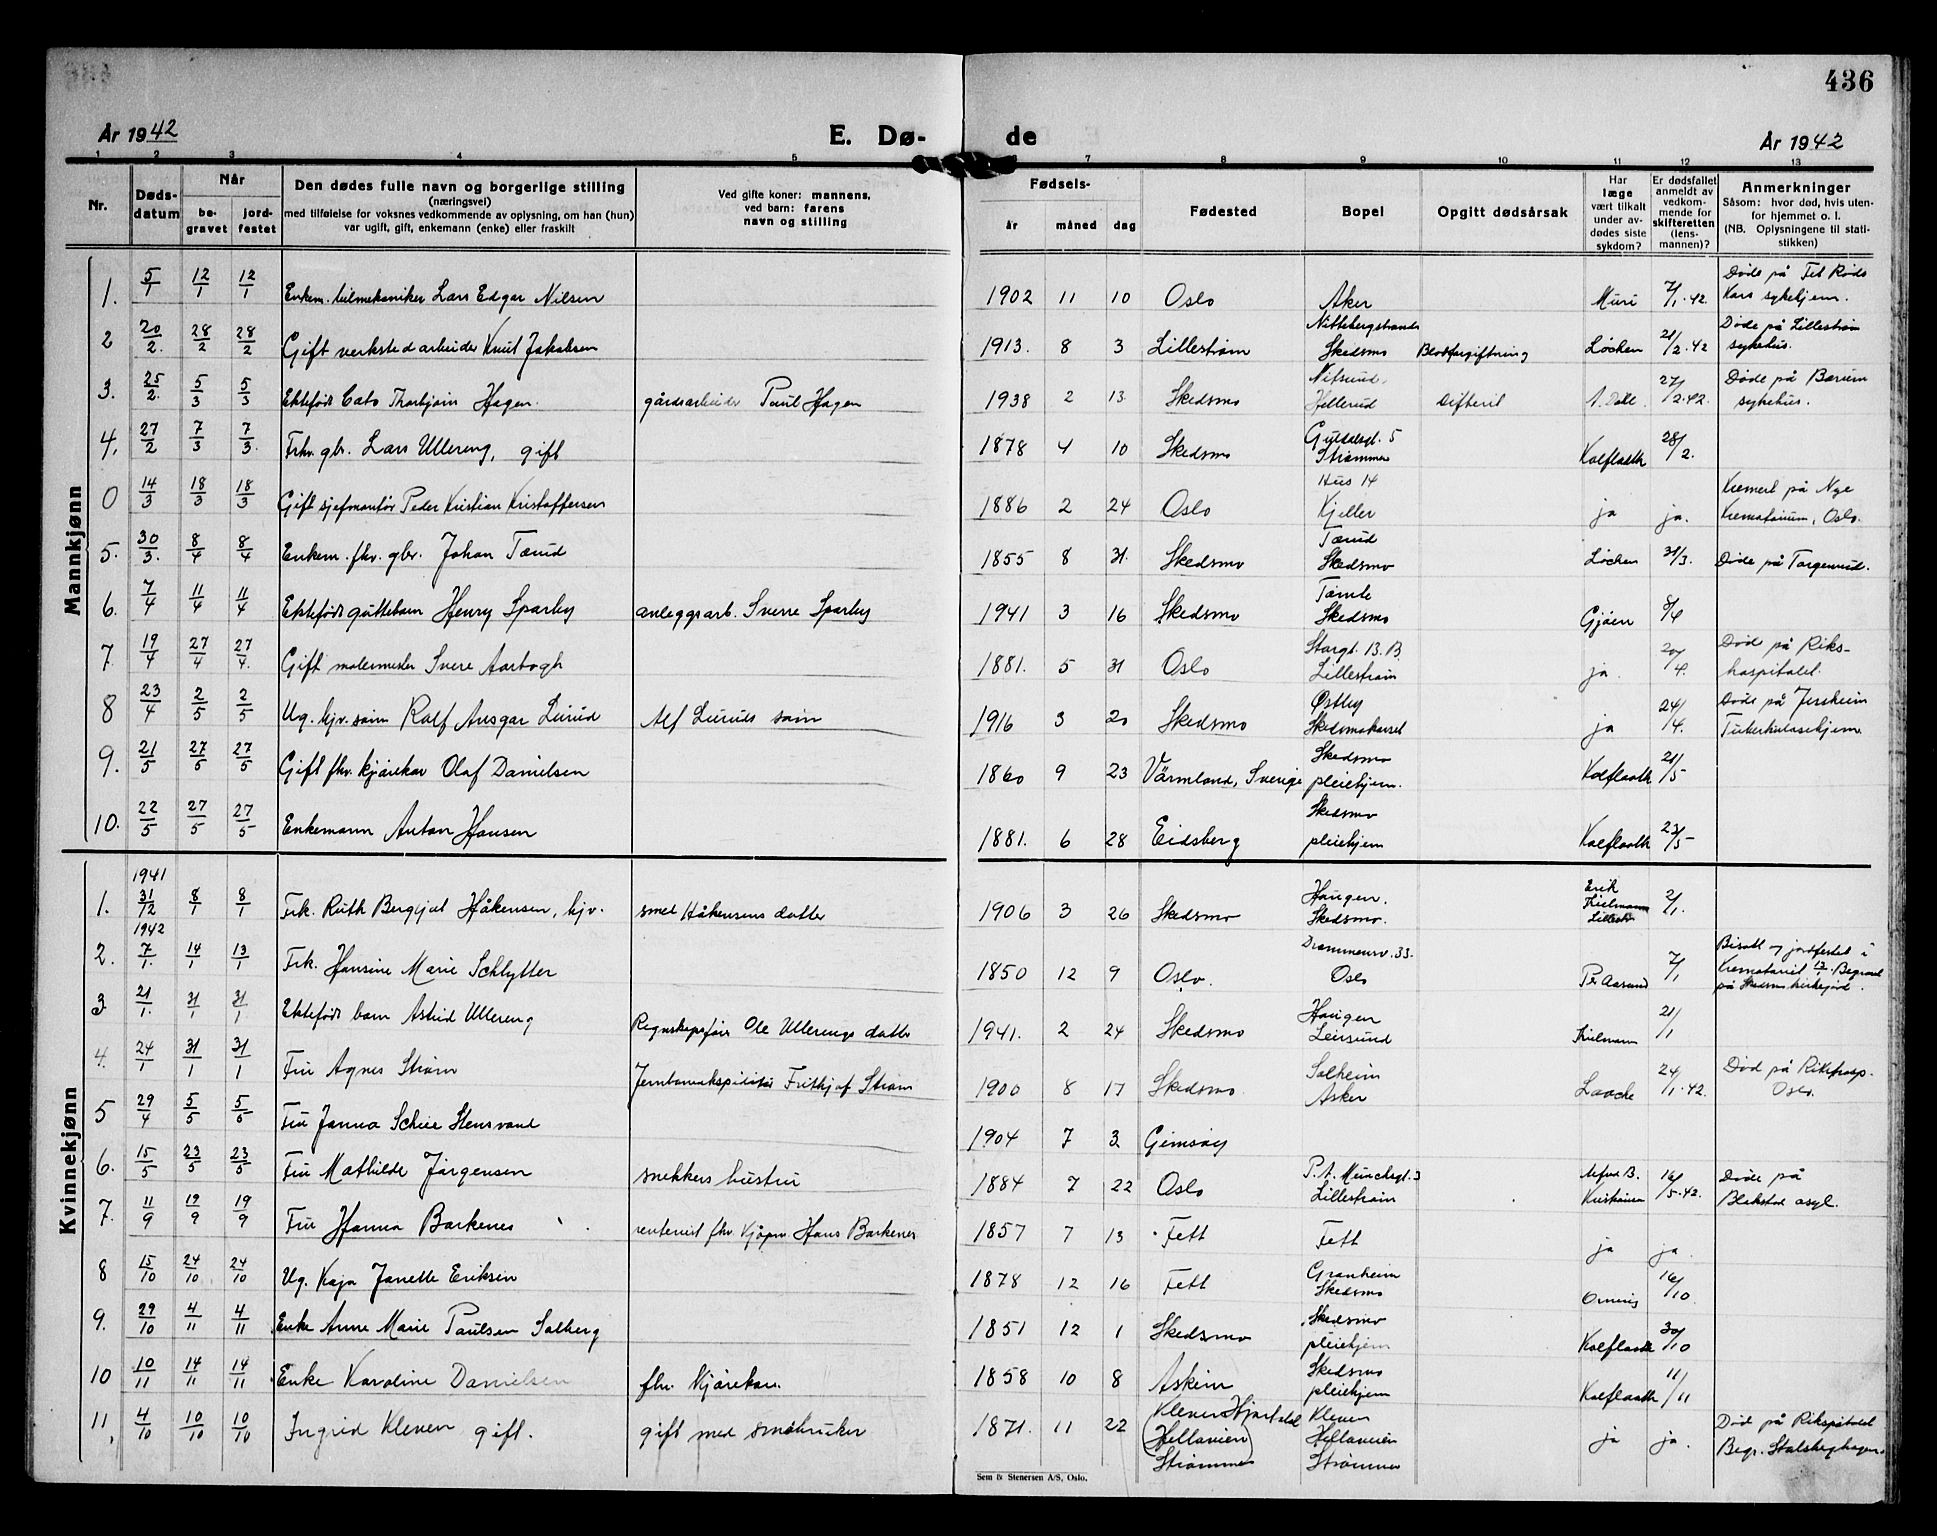 436
År 1942
E. Dø-
de
År 1942
1 2 3 4 5 6 7 8 9 10 11 12 13
Nr.
Døds-
datum
Når
be-
gravet
jord-
festet
Den dødes fulle navn og borgerlige stilling
(næringsvei)
med tilføielse for voksnes vedkommende av oplysning, om han (hun)
var ugift, gift, enkemann (enke) eller fraskilt
Ved gifte koner: mannens,
ved barn: farens
navn og stilling
Fødsels-
år måned dag
Fødested
Bopel
Opgitt dødsårsak
Har
læge
vært tilkalt
under av-
dødes siste
sykdom?
Er dødsfallet
anmeldt av
vedkom-
mende for
skifteretten
(lens-
mannen)?
Anmerkninger
Såsom: hvor død, hvis uten-
for hjemmet o. l.
(NB. Oplysningene til stati-
stikken)
Mannkjønn
1. 5/1 12/1 12/1 Enkem. bilmekaniker Lars Edgar Nilsen 1902 11 10 Oslo Aker 7/1.42 Døde på Kors sykehjem.
2 20/2. 28/2 28/2 Gift verksted arbeider Knut Jakobsen 1913. 8 3 Lillestrøm Skedsmo Blodforgiftning Løchen 21/2.42 Døde på Lillestrøm sykehus.
3. 25/2. 5/3 5/3 Ektefødt Cato Thorbjørn Hagen. gårdsarbeider Paul Hagen 1938 2 13 Skedsmo Nitsund, Hellerud Difterit 27/2.42. Døde på Bærum sykehus.
4. 27/2 7/3 7/3. Frhv. gbr. Lars Ullereng, gift 1878 4 10 Skedsmo Strømmen Kolflaath 28/2.
0 14/3 18/3 18/3 Gift sjefmontør Peder Kristian Kristoffersen 1886 2 24 Oslo Hus 14 Kjeller ja ja. Kremert på Nye Krematorium, Oslo.
5. 30/3. 8/4 8/4 Enkem. fhv. gbr. Johan Tærud 1855 8 31. Skedsmo Tærud Skedsmo Løchen 31/3. Døde på Torgerud.
6. 7/4 11/4 11/4 Ektefødt guttebarn Henry Sparby anleggsarb. Sverre Sparby 1941 3 16 Skedsmo Tomte Skedsmo Gjøen 8/4
7. 19/4 27/4 27/4. Gift malermester Svere Aartogh 1881. 5 31 Oslo Storgt. 13.B. Lillestrøm ja. 20/4. Død på Riks-hospitalet.
8 23/4 2/5 2/5 Ug. hjv. sønn Rolf Ansgar Lurud Alf Luruds sønn 1916 3 20 Skedsmo Østby Skedsmokorset ja 24/4. Døde på Jessheim Tuberkulosehjem.
9. 21/5 27/5 27/5 Gift fhv. kjørekar Olaf Danielsen 1860 9 23 Värmland, Sverige Skedsmo pleiehjem. Kolflaath 21/5
10. 22/5 27/5 27/5 Enkemann Anton Hansen 1881. 6 28 Eidsberg Skedsmo pleiehjem Kolflaath 23/5
Kvinnekjønn
1. 1941 31/12 8/1 8/1 Frk. Ruth Bergljot Håkensen, hjv. smed Håkensens datter 1906 3 26 Skedsmo Haugen. Skedsmo. Erik Kielmann 2/1.
2. 1942 7/1. 14/1 13/1 Frk. Hansine Marie Schlytter 1850 12 9 Oslo. Drammensv. 33. Oslo 7/1 Bisatt og jordfestet i Krematoriet 13/1. Begravet på Skedsmo kirkegård.
3. 21/1. 31/1 31/1 Ektefødt barn Astrid Ullereng Regnskapsfører Ole Ullerengs datter 1941. 2 24 Skedsmo Haugen Leirsund Kielmann 21/1
4. 24/1 31/1 31/1 Fru Agnes Strøm Jernbaneekspeditør Frithjof Strøm 1900 8 17 Skedsmo Solheim Asker Laache 24/1.42. Død på Rikshosp. Oslo.
5 29/4 5/5 5/5 Fru Janna Scheie Stensvand 1904 7 3 Gimsøy
6. 15/5 23/5 23/5 Fru Mathilde Jørgensen snekkers hustru 1884 7 22 Oslo P.A. Munchsgt. 3 Lillestrøm Alfred B. 16/5.42. Døde på Blakstad asyl.
7. 11/9 19/9 19/9 Fru Hanna Barkenes rentenist fhv. kjøpm. Hans Barkenes 1857 7 13 Fett Fett ja ja.
8 15/10 24/10 24/10 Ug. Kaja Janette Eriksen 1878 12 16 Fett Granheim Skedsmo 16/10
9. 29/10 4/11 4/11 Enke Anne Marie Paulsen Solberg 1851 12 1 Skedsmo Skedsmo pleiehjem Kolflaath 30/10
10 10/11 14/11 14/11 Enke Karoline Danielsen fhv. kjørekar. 1858 10 8 Askim Skedsmo pleiehjem Kolflaath 11/11
11, 4/10 10/10 10/10 Ingrid Kleven gift. gift med småbruker 1871. 11 22 Kleven Hjartdal (Hellaveien) Strømmen Kleven Hellaveien Strømmen ja ja. Død på Rikspitalet Begr. Stalsberghagen.
Sem & Stenersen A/S, Oslo.